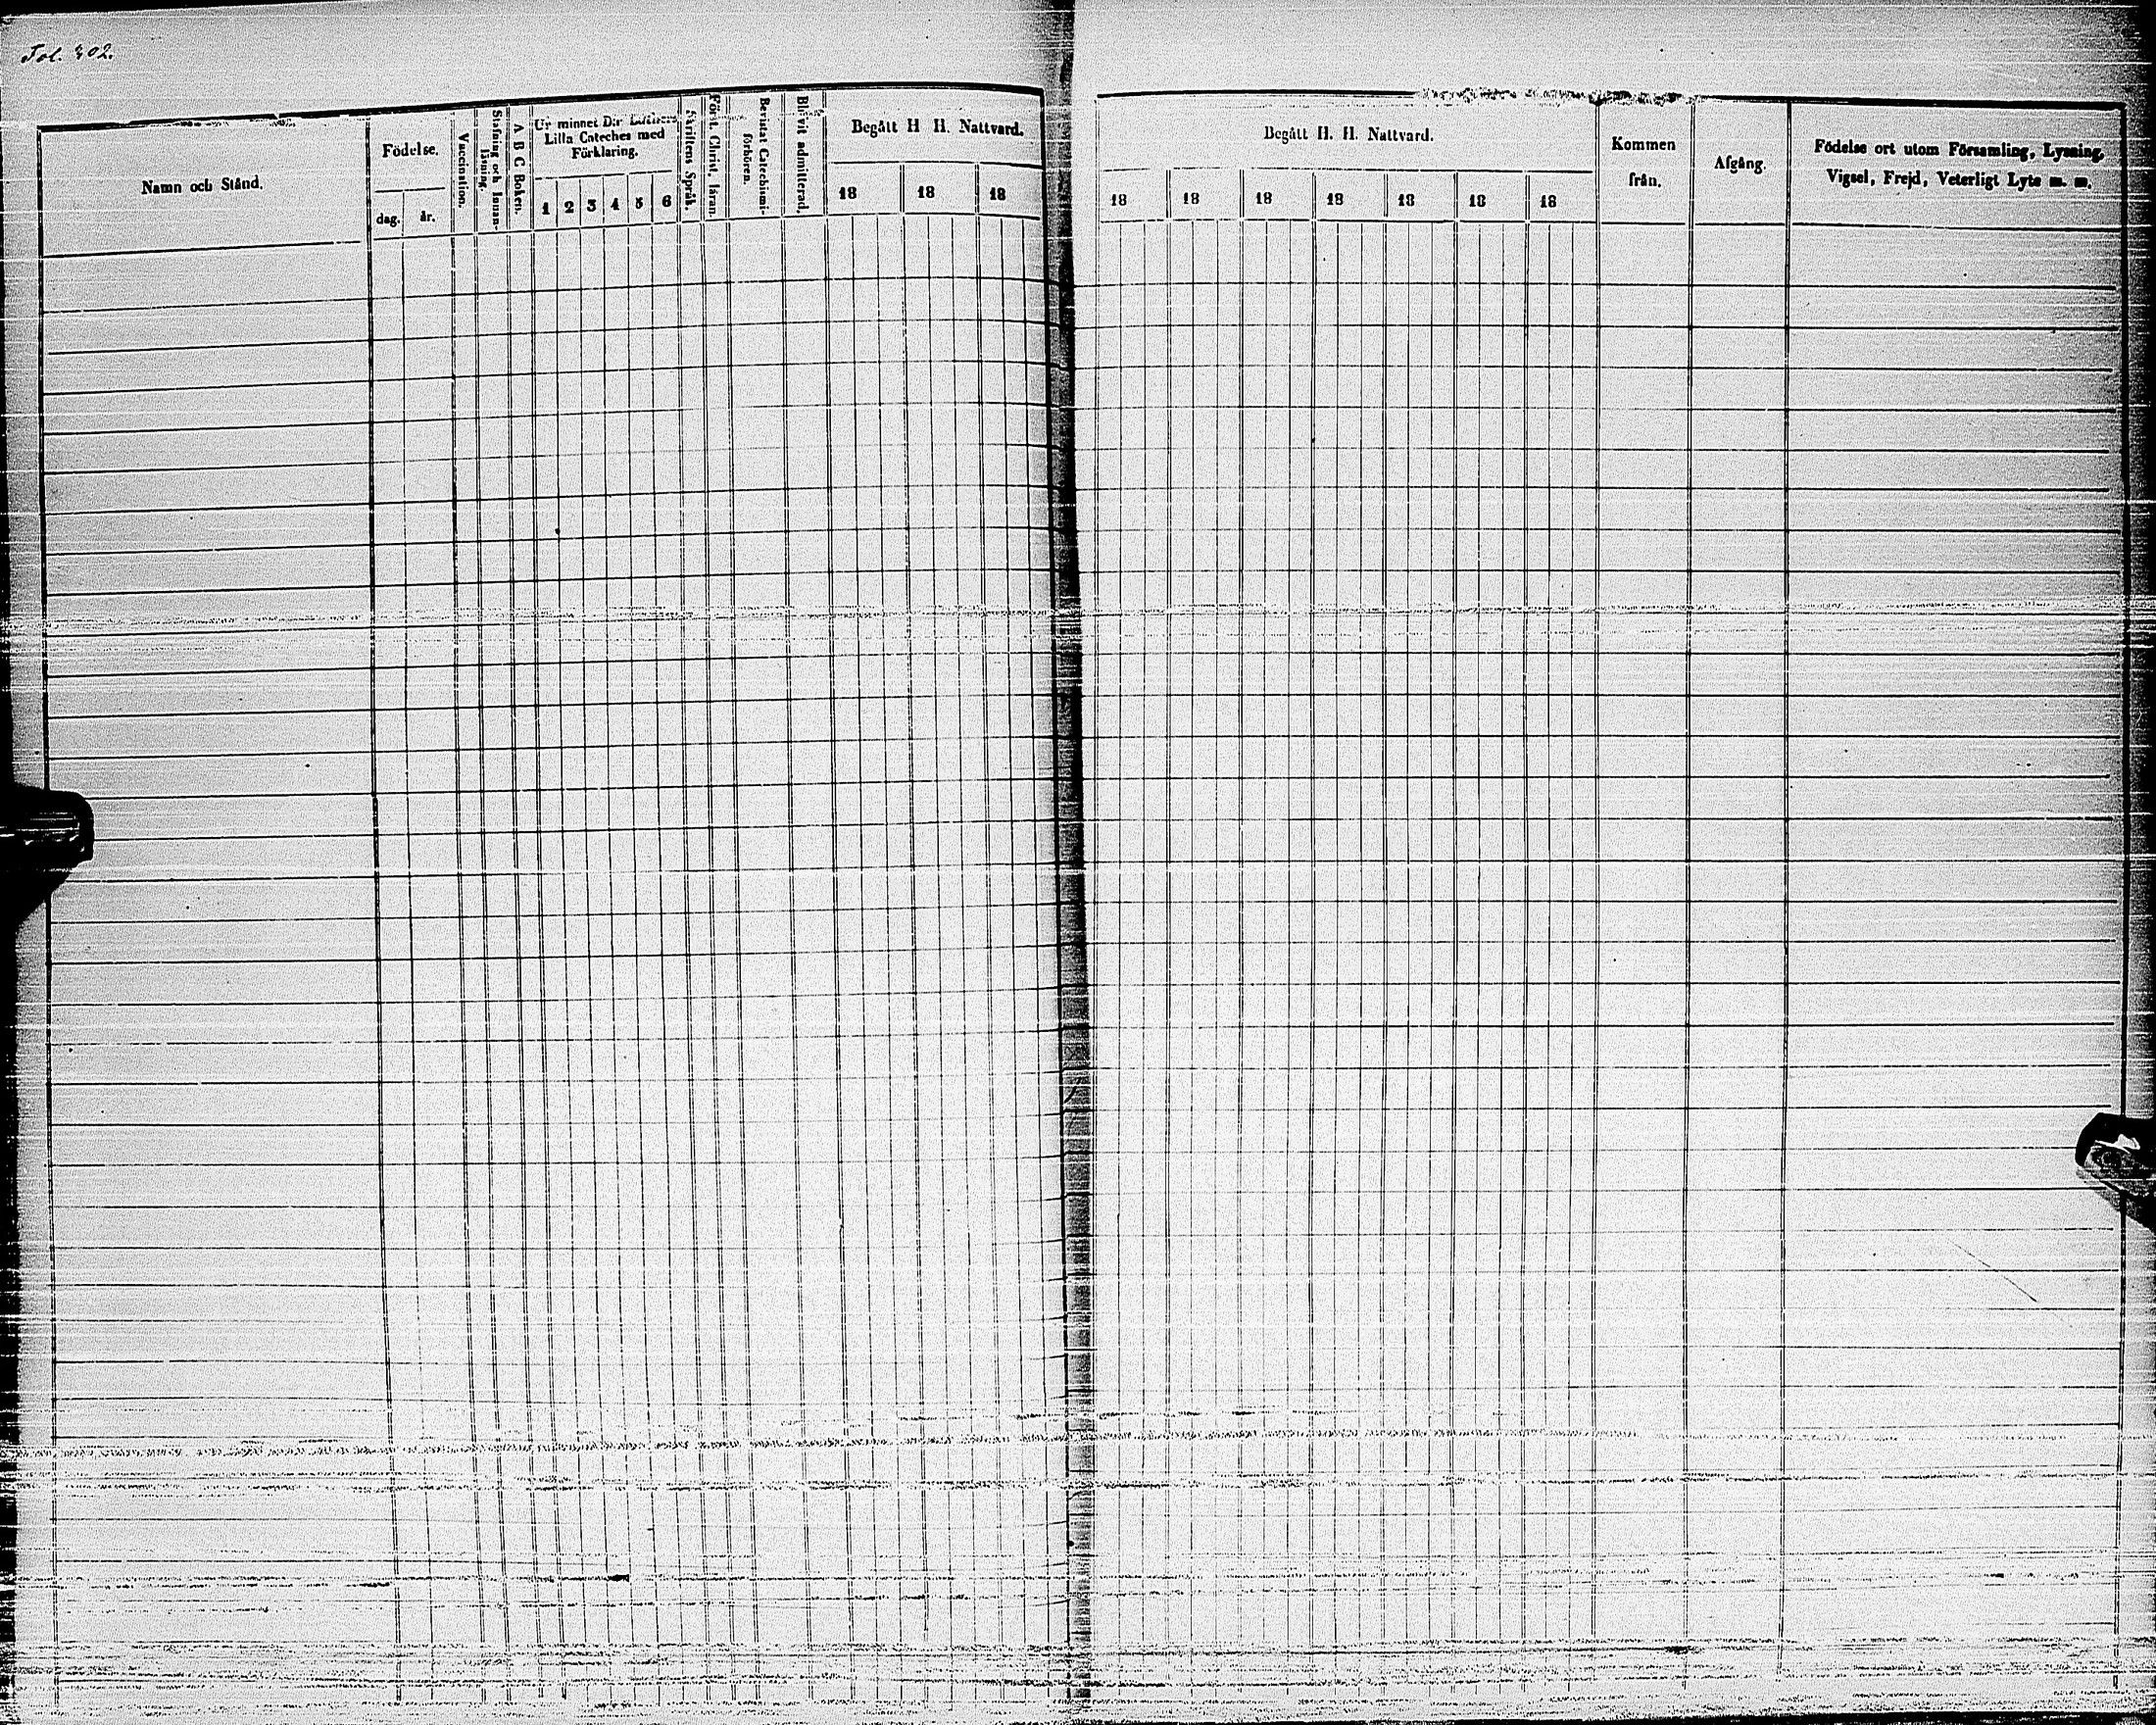 Fol. 302.
Namn och Stånd.
Födelse.
dag.
år.
Vaccination.
Stafning och Innan-
läsning.
A B C Boken.
Ur minnet D:r Luthers
Lilla Cateches med
Förklaring.
1 2 3 4 5 6
Skriftens Språk.
Först. Christ. läran.
Bevistat Catechismi-
förhören.
Blifvit admitterad.
Begått H H. Nattvard.
18 18 18
Begått H. H. Nattvard.
18 18 18 18 18 18 18
Kommen
från.
Afgång.
Födelse ort utom Församling, Lysning,
Vigsel, Frejd, Veterligt Lyte m. m.